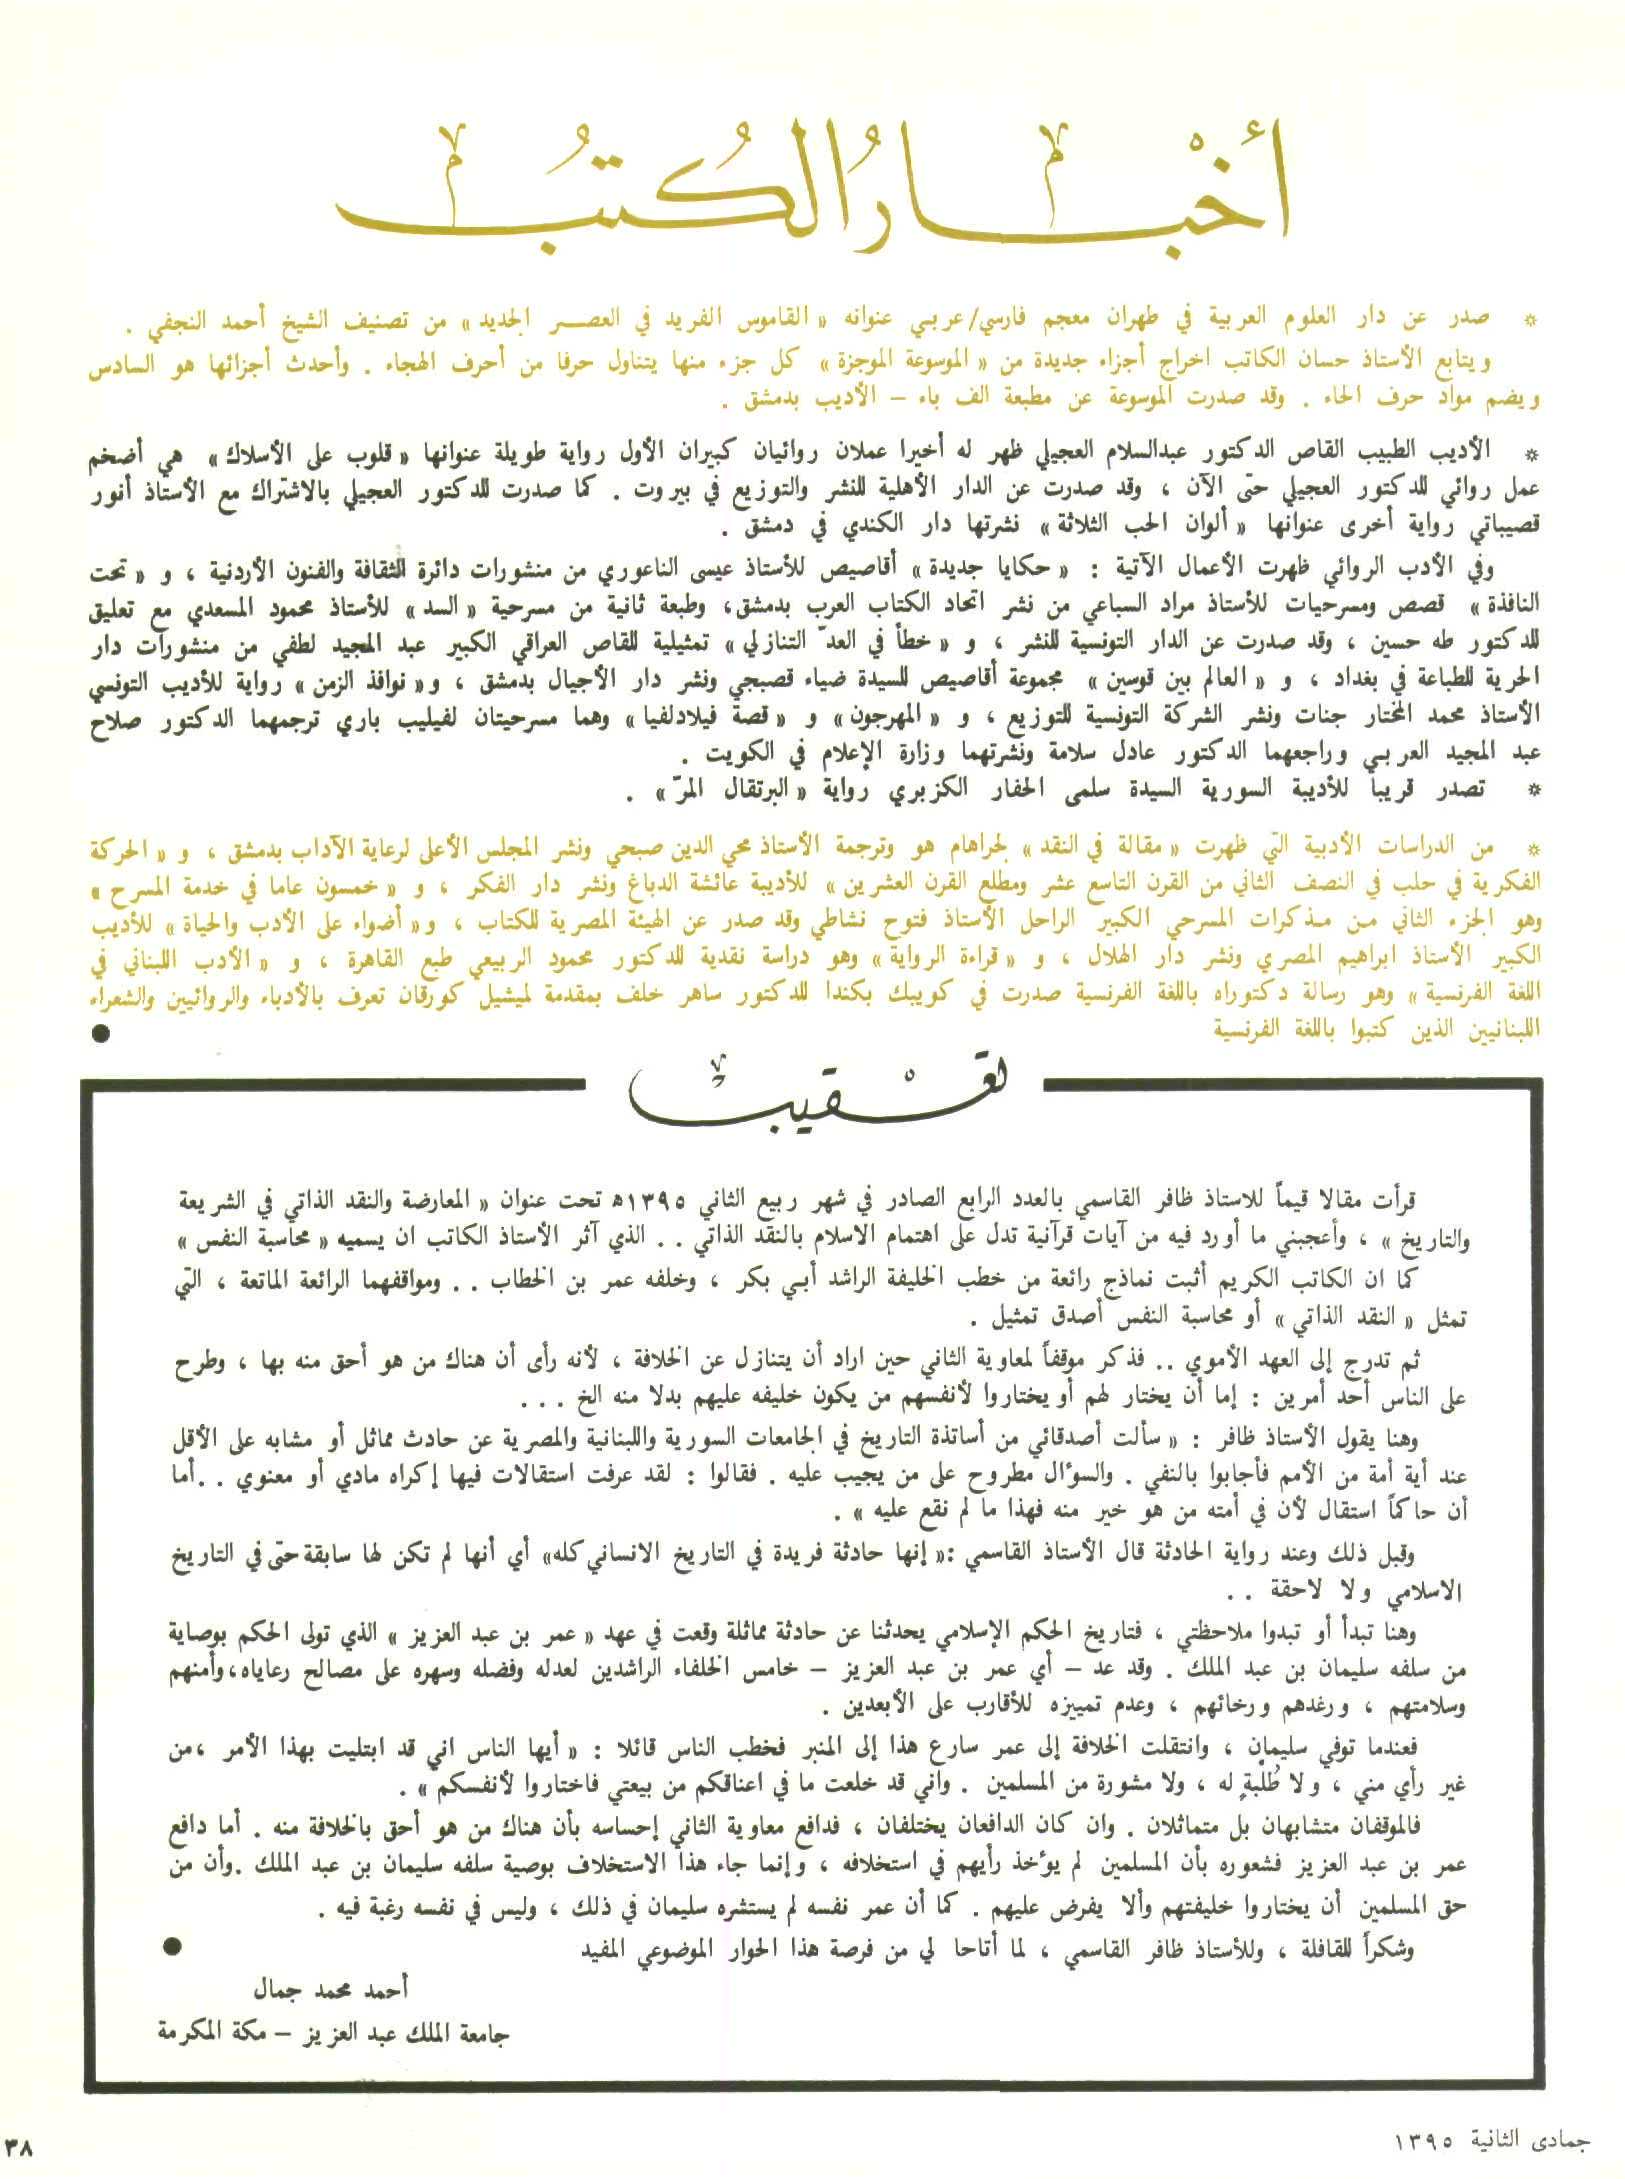 أخبار الكتب
* صدر عن دار العلوم العربية في طهران معجم فارسي/عربي عنوانه « القاموس الفريد في العصر الجديد » من تصنيف الشيخ أحمد النجفي .
ويتابع الأستاذ حسان الكاتب اخراج أجزاء جديدة من « الموسوعة الموجزة » كل جزء منها يتناول حرفا من أحرف الهجاء . وأحدث أجزائها هو السادس
ويضم مواد حرف الحاء . وقد صدرت الموسوعة عن مطبعة الف باء – الأديب بدمشق .
* الأديب الطبيب القاص الدكتور عبدالسلام العجيلي ظهر له أخيرا عملان روائيان كبيران الأول رواية طويلة عنوانها « قلوب على الأسلاك » هي أضخم
عمل روائي للدكتور العجيلي حتى الآن ، وقد صدرت عن الدار الأهلية للنشر والتوزيع في بيروت . كما صدرت للدكتور العجيلي بالاشتراك مع الأستاذ أنور
قصيباتي رواية أخرى عنوانها « ألوان الحب الثلاثة » نشرتها دار الكندي في دمشق .
وفي الأدب الروائي ظهرت الأعمال الآتية : « حكايا جديدة » أقاصيص للأستاذ عيسى الناعوري من منشورات دائرة الثقافة والفنون الأردنية ، و « تحت
النافذة » قصص ومسرحيات للأستاذ مراد السباعي من نشر اتحاد الكتاب العرب بدمشق، وطبعة ثانية من مسرحية « السد » للأستاذ محمود المسعدي مع تعليق
للدكتور طه حسين ، وقد صدرت عن الدار التونسية للنشر ، و « خطأ في العدّ التنازلي » تمثيلية للقاص العراقي الكبير عبد المجيد لطفي من منشورات دار
الحرية للطباعة في بغداد ، و « العالم بين قوسين » مجموعة أقاصيص للسيدة ضياء قصبجي ونشر دار الأجيال بدمشق ، و« نوافذ الزمن » رواية للأديب التونسي
الأستاذ محمد المختار جنات ونشر الشركة التونسية للتوزيع ، و « المهرجون » و « قصة فيلادلفيا » وهما مسرحيتان لفيليب باري ترجمهما الدكتور صلاح
عبد المجيد العربي وراجعهما الدكتور عادل سلامة ونشرتهما وزارة الإعلام في الكويت .
* تصدر قريباً للأديبة السورية السيدة سلمى الحفار الكزبري رواية « البرتقال المرّ » .
* من الدراسات الأدبية التي ظهرت « مقالة في النقد » لجراهام هو وترجمة الأستاذ محي الدين صبحي ونشر المجلس الأعلى لرعاية الآداب بدمشق ، و « الحركة
الفكرية في حلب في النصف الثاني من القرن التاسع عشر ومطلع القرن العشرين » للأديبة عائشة الدباغ ونشر دار الفكر ، و « خمسون عاما في خدمة المسرح »
وهو الجزء الثاني من مذكرات المسرحي الكبير الراحل الأستاذ فتوح نشاطي وقد صدر عن الهيئة المصرية للكتاب ، و« أضواء على الأدب والحياة » للأديب
الكبير الأستاذ ابراهيم المصري ونشر دار الهلال ، و « قراءة الرواية » وهو دراسة نقدية للدكتور محمود الربيعي طبع القاهرة ، و « الأدب اللبناني في
اللغة الفرنسية » وهو رسالة دكتوراه باللغة الفرنسية صدرت في كويبك بكندا للدكتور ساهر خلف بمقدمة لميشيل كورقان تعرف بالأدباء والروائيين والشعراء
اللبنانيين الذين كتبوا باللغة الفرنسية ●
تعقيب
قرأت مقالا قيماً للاستاذ ظافر القاسمي بالعدد الرابع الصادر في شهر ربيع الثاني ١٣٩٥ﻫ تحت عنوان « المعارضة والنقد الذاتي في الشريعة
والتاريخ » ، وأعجبني ما أورد فيه من آيات قرآنية تدل على اهتمام الاسلام بالنقد الذاتي . . الذي آثر الأستاذ الكاتب ان يسميه « محاسبة النفس »
كما ان الكاتب الكريم أثبت نماذج رائعة من خطب الخليفة الراشد أبي بكر ، وخلفه عمر بن الخطاب . . ومواقفهما الرائعة الماتعة ، التي
تمثل « النقد الذاتي » أو محاسبة النفس أصدق تمثيل .
ثم تدرج إلى العهد الأموي .. فذكر موقفاً لمعاوية الثاني حين اراد أن يتنازل عن الخلافة ، لأنه رأى أن هناك من هو أحق منه بها ، وطرح
على الناس أحد أمرين : إما أن يختار لهم أو يختاروا لأنفسهم من يكون خليفه عليهم بدلا منه الخ . . .
وهنا يقول الأستاذ ظافر : « سألت أصدقائي من أساتذة التاريخ في الجامعات السورية واللبنانية والمصرية عن حادث مماثل أو مشابه على الأقل
عند أية أمة من الأمم فأجابوا بالنفي . والسؤال مطروح على من يجيب عليه . فقالوا : لقد عرفت استقالات فيها إكراه مادي أو معنوي . .أما
أن حاكماً استقال لأن في أمته من هو خير منه فهذا ما لم نقع عليه » .
وقبل ذلك وعند رواية الحادثة قال الأستاذ القاسمي :« إنها حادثة فريدة في التاريخ الانساني كله» أي أنها لم تكن لها سابقة حتى في التاريخ
الاسلامي ولا لاحقة . .
وهنا تبدأ أو تبدوا ملاحظتي ، فتاريخ الحكم الإسلامي يحدثنا عن حادثة مماثلة وقعت في عهد « عمر بن عبد العزيز » الذي تولى الحكم بوصاية
من سلفه سليمان بن عبد الملك . وقد عد – أي عمر بن عبد العزيز – خامس الخلفاء الراشدين لعدله وفضله وسهره على مصالح رعاياه،وأمنهم
وسلامتهم ، ورغدهم ورخائهم ، وعدم تمييزه للأقارب على الأبعدين .
فعندما توفي سليمان ، وانتقلت الخلافة إلى عمر سارع هذا إلى المنبر فخطب الناس قائلا : « أيها الناس اني قد ابتليت بهذا الأمر ،من
غير رأي مني ، ولا طُلْبةٍ له ، ولا مشورة من المسلمين . واني قد خلعت ما في اعناقكم من بيعتي فاختاروا لأنفسكم » .
فالموقفان متشابهان بل متماثلان . وان كان الدافعان يختلفان ، فدافع معاوية الثاني إحساسه بأن هناك من هو أحق بالخلافة منه . أما دافع
عمر بن عبد العزيز فشعوره بأن المسلمين لم يؤخذ رأيهم في استخلافه ، وإنما جاء هذا الاستخلاف بوصية سلفه سليمان بن عبد الملك .وأن من
حق المسلمين أن يختاروا خليفتهم وألا يفرض عليهم . كما أن عمر نفسه لم يستشره سليمان في ذلك ، وليس في نفسه رغبة فيه .
وشكراً للقافلة ، وللأستاذ ظافر القاسمي ، لما أتاحا لي من فرصة هذا الحوار الموضوعي المفيد ●
أحمد محمد جمال
جامعة الملك عبد العزيز – مكة المكرمة
جمادى الثانية ١٣٩٥
٣٨